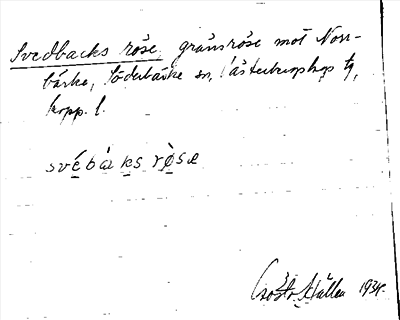 Svedbacks röse, gränsröse mot Norr-
bärke, Söderbärke sn, Västerbergslags tg,
Kopp. l.
svébàks rø̀sæ
Gösta Hållen 1934.